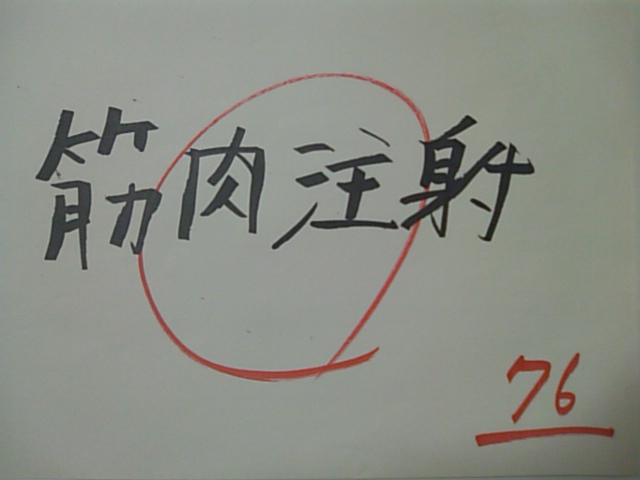 筋肉注射
76